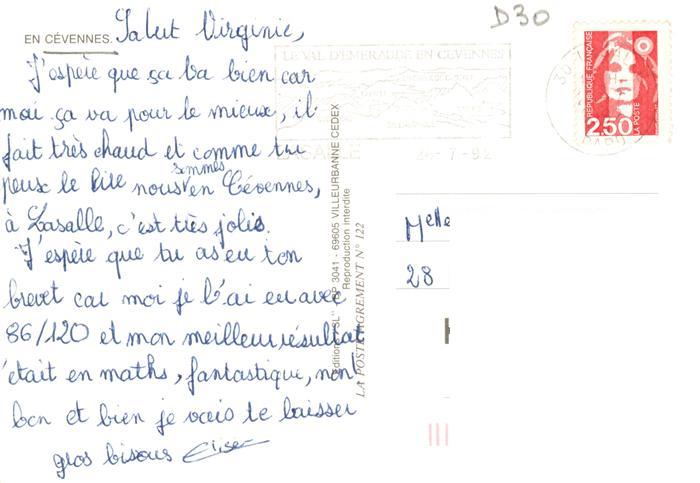 D30
EN CÉVENNES.
Salut Virginie,
J'espère que ça va bien car
moi ça va pour le mieux, il
fait très chaud et comme tu
peux le lire nous sommes en Cévennes,
à Lasalle, c'est très joli.
J'espère que tu as eu ton
brevet car moi je l'ai eu avec
86/120 et mon meilleur résultat
était en maths, fantastique, non!
bon et bien je vais te laisser
gros bisous Elise
LE VAL D'EMERAUDE EN CEVENNES
LASALLE
7-92
RÉPUBLIQUE FRANÇAISE
LA POSTE
2,50
69605 VILLEURBANNE CEDEX
Reproduction interdite
LA POSTE AGREMENT N° 122
Melle
28